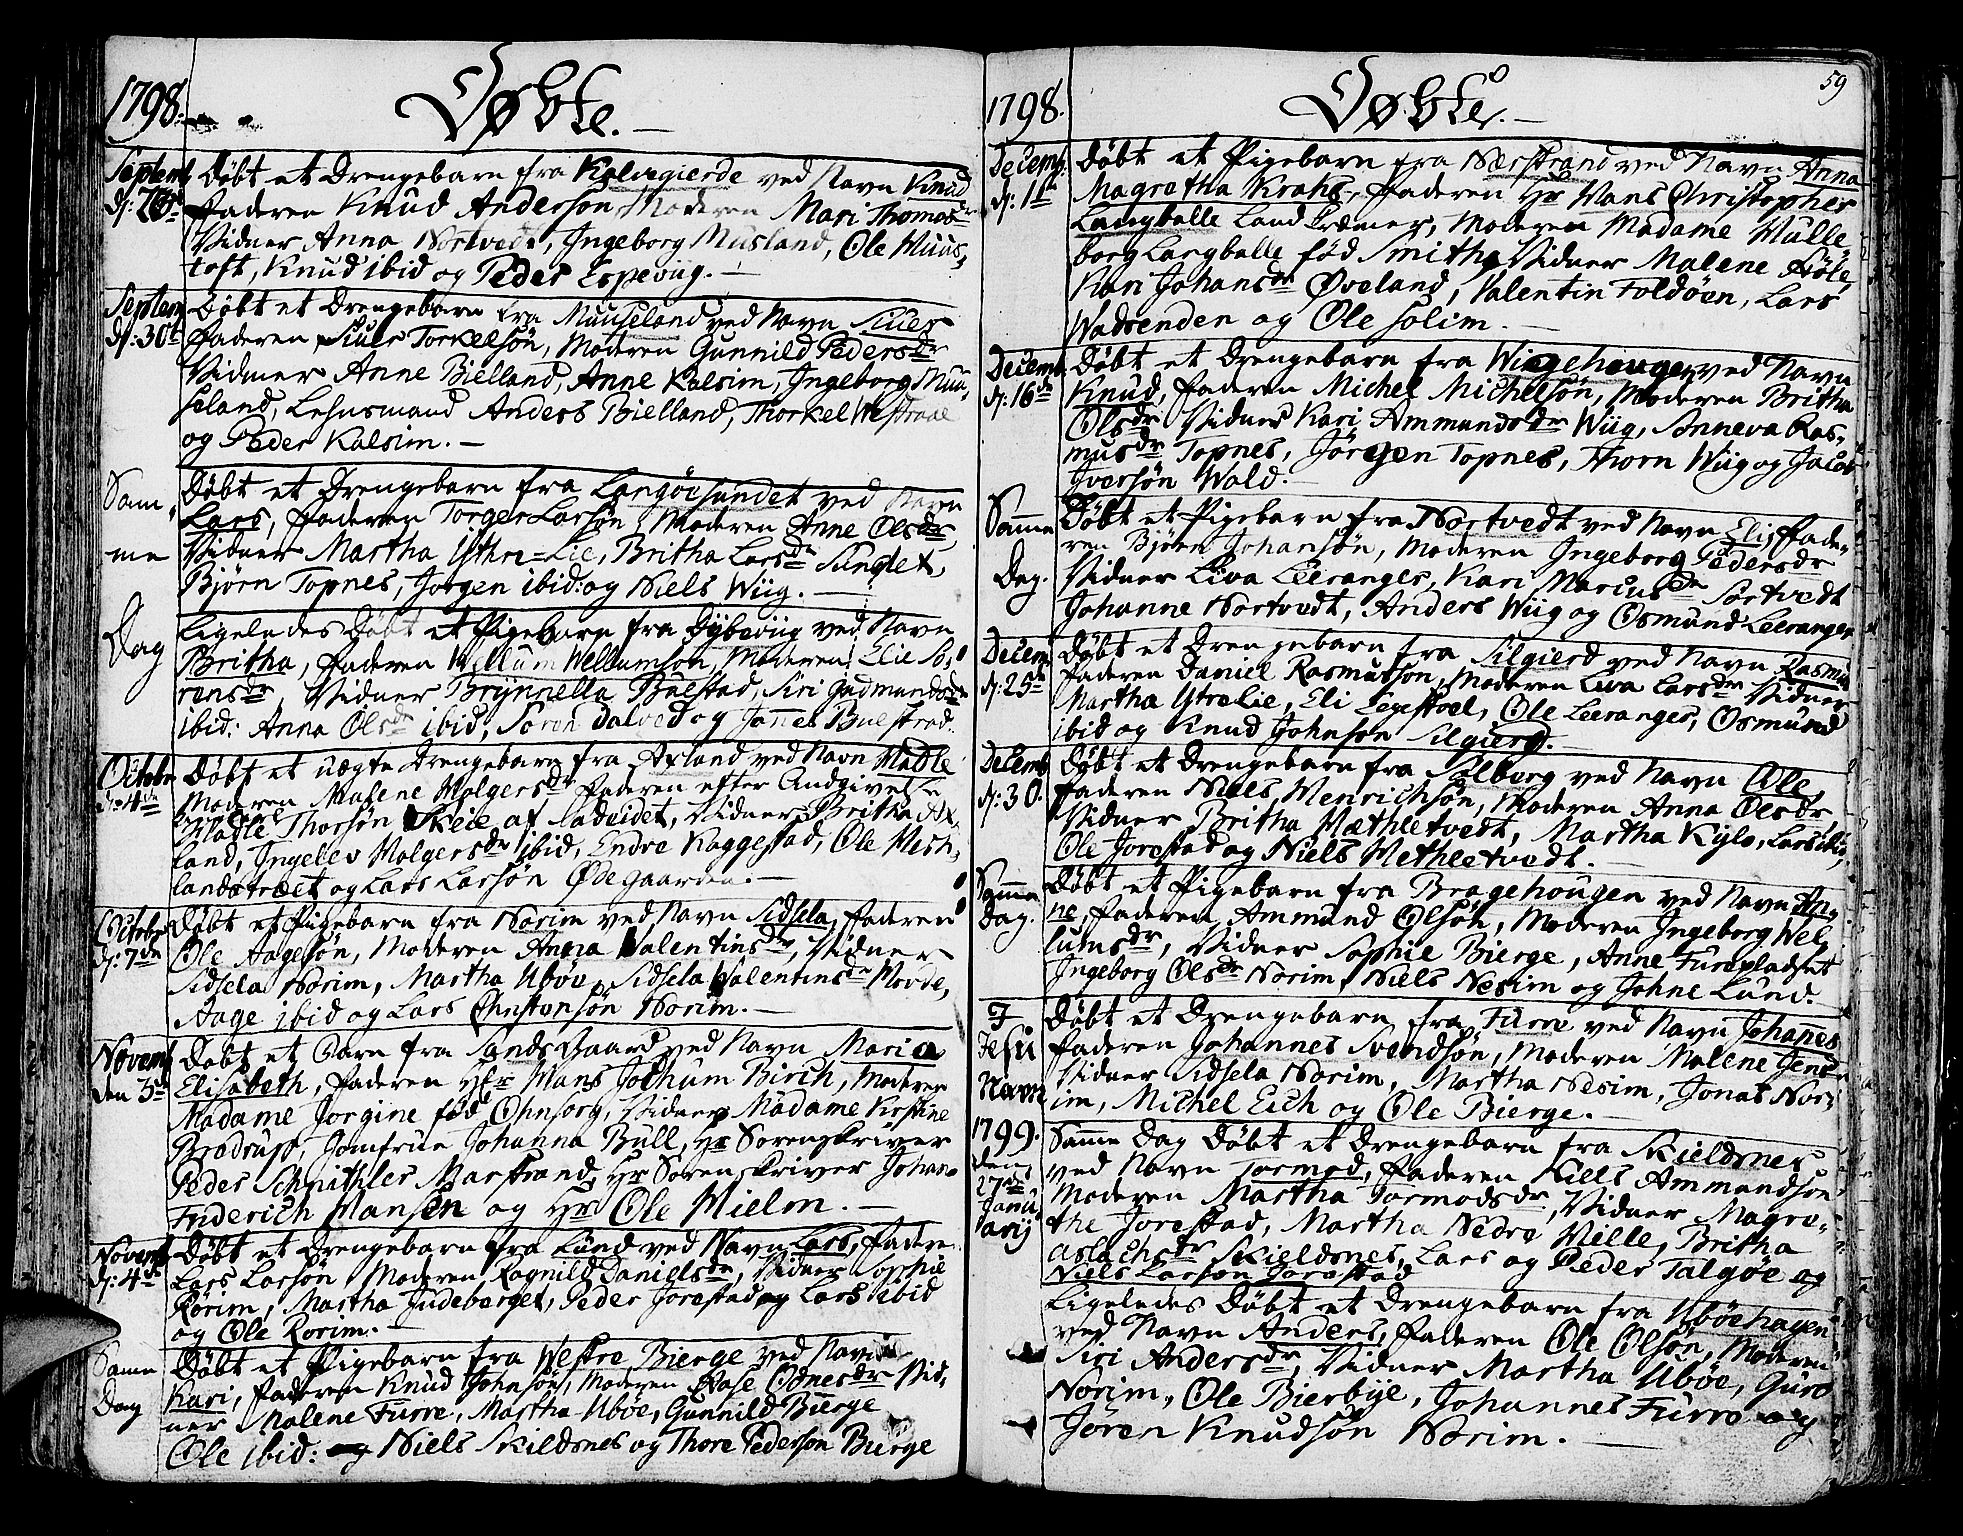 1798. Døbte.
Septemb Døbt et Drengebarn fra Kalvegierde ved Navn Knud
Faderen Knud Anderson, Moderen Mari Thomasdr
Vidner Anna Nortvedt, Ingeborg Musland, Ole Muus-
toft, Knud ibid og Peder Espeviig.
Septem Døbt et Drengebarn fra Muuseland ved Navn Siuer
d: 30t Faderen Siuer Torkelsøn, Moderen Gunnild Pedersdr
Vidner Anne Bielland, Anne Kalsim, Ingeborg Muu-
seland, Lehnsmand Anders Bielland, Thorkel Westraae
og Peder Kalsim.
Sam- Døbt et Drengebarn fra Langøesundet ved Navn
Lars, Faderen Torger Larsøn, Moderen Anne Olsdr
me Vidner Martha Ythre-Lie, Britha Larsdr Sundet,
Bjørn Topnes, Jørgen ibid: og Niels Wiig.
Ligeledes Døbt et Pigebarn fra Dybeviig ved Navn
Dag Britha, Faderen Wellum Wellumsøn, Moderen Elie Sø-
rensdr, Vidner Brynnella Buestad, Siri Gudmundsdr
ibid: Anna Olsdr ibid, Søren Dalved og Jannes Buestad.
Octobr Døbt et uægte Drengebarn fra Axland ved Navn Madle
d: 4de Moderen Malene Holgersdr Faderen efter Andgivelse
Madle Thorsøn Skeie af Ladeidet, Vidner Britha Ax-
land, Ingelev Holgersdr ibid, Endre Kaggestad, Ole Mesk-
landstræet og Lars Larsøn Ødegaarden.
Octobr Døbt et Pigebarn fra Norim ved Navn Sidsela, Faderen
d: 7de Ole Aagesøn, Moderen Anna Valentinsdr, Vidner
Sidsela Norim, Martha Ubøe, Sidsela Valentinsdr Hovde,
Aage ibid og Lars Christensøn Norim.
Novemb Døbt et Barn fra Sands Gaard ved Navn Maria
den 3de Elisabeth, Faderen Hr Hans Jochum Birch, Moderen
Madame Jorgine fød Ohnsorg, Vidner Madame Kirstine
Brodrup, Jomfrue Johanna Bull, Hr Sorenskriver
Peder Schnithler Marstrand, Hr Sorenskriver Johan
Friderich Hansen og Hr Ole Hielm.
Novemb Døbt et Drengebarn fra Lund ved Navn Lars, Fade-
d: 4de Lars Larsøn, Moderen Ragnild Danielsdr, Vidner Sophie
Rørim, Martha Judeberget, Peder Jorestad og Lars ibid
og Ole Rorim.
Same Døbt et Pigebarn fra Westre Bierge ved Navn
Dag Kari, Faderen Knud Johnsøn, Moderen Aase Odnesdr Vid-
ner Malene Furre, Martha Ubøe, Gunnild Bierge
Ole ibid: og Niels Skieldsnes og Thore Pedersøn Bierge
59
1798. Døbte.
Decemb: Døbt et Pigebarn fra Nerstrand ved Navn Anna
d: 1te Magretha Krahs, Faderen Hr Hans Christopher
Langballe Land Kræmer, Moderen Madame Hulle-
borg Langballe fød Smith, Vidner Malene Høle,
Kari Johansdr Øveland, Valentin Foldøen, Lars
Wadsenden og Ole Solim.
Decemb Døbt et Drengebarn fra Wiigehougen ved Navn
d: 16de Knud, Faderen Michel Michelsøn, Moderen Britha
Olsdr Vidner Kari Ammundsdr Wiig, Sønneva Ras-
musdr Topnes, Jørgen Topnes, Thorn Wiig og Jacob
Iversøn Wald.
Samme Døbt et Pigebarn fra Nortvedt ved Navn Eli, Fade-
ren Bjørn Johansøn, Moderen Ingeborg Pedersdr
Dag. Vidner Liva Leeranger, Kari Mariusdr Sortvedt
Johanne Nortvedt, Anders Wiig og Osmund Leeranger
Decem Døbt et Drengebarn fra Silgierd ved Navn Rasmus
d: 25de Faderen Daniel Rasmusøn, Moderen Liva Larsdr Vidner
Martha Ytrelie, Eli Legestoel, Ole Leeranger, Osmund
ibid og Knud Johnsøn Silgierd.
Decemb Døbt et Drengebarn fra Solberg ved Navn Ole,
d: 30. Faderen Niels Henrichsøn, Moderen Anna Olsdr
Vidner Britha Hæthletvedt, Martha Kyle, Lars ibid,
Ole Jorestad og Niels Hethletvedt.
Samme Døbt et Pigebarn fra Bragehougen ved Navn An-
Dag. ne, Faderen Ammund Olsøn, Moderen Ingeborg Wel-
lumsdr, Vidner Sophie Bierge, Anne Furepladset
Ingeborg Olsdr Norim, Niels Nesim og Johne Lund.
I Døbt et Drengebarn fra Furre ved Navn Johanes
Jesu Faderen Johannes Svendsøn, Moderen Malene Jensdr
Navn Vidner Sidsela Norim, Martha Nesim, Jonas Nor-
im, Michel Eich og Ole Bierge.
1799. Samme Dag Døbt et Drengebarn fra Skieldsnes
den ved Navn Tormod, Faderen Niels Ammundsøn
27de Moderen Martha Tormodsdr, Vidner Magre-
Janu- the Jorestad, Martha Nedre Hille, Britha
arij Aslachsdr Skieldsnes, Lars og Peder Talgøe og
Niels Larsøn Jorestad
Ligeledes Døbt et Drengebarn fra Ubøehagen
ved Navn Anders, Faderen Ole Olsøn, Moderen
Siri Andersdr, Vidner Martha Ubøe, Guro
Norim, Ole Bierbye, Johannes Furre og
Jøren Knudsøn Norim.